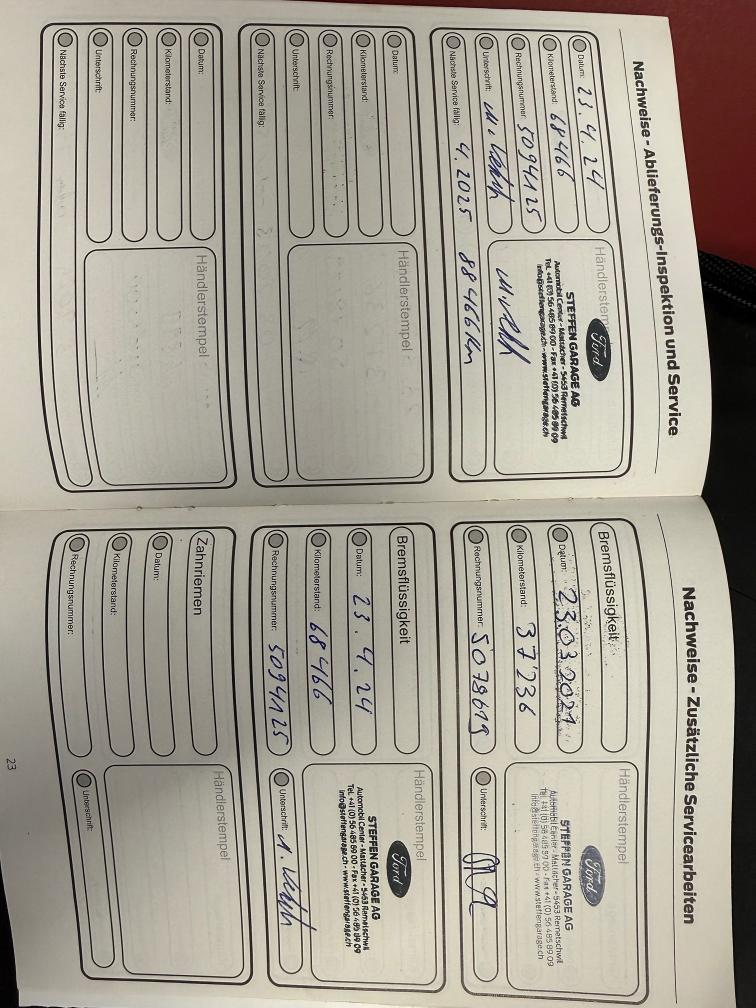 Nachweise - Ablieferungs-Inspektion und Service
Datum: 23.4.24
Kilometerstand: 68466
Rechnungsnummer: 5094125
Unterschrift:
Nächste Service fällig: 4.2025 88466 km
Händlerstempel
Ford
STEFFEN GARAGE AG
Automobil Center - Mattächer - 5453 Remetschwil
Tel. +41 (0) 56 485 89 00 - Fax +41 (0) 56 485 89 09
info@steffengarage.ch - www.steffengarage.ch
Datum:
Kilometerstand:
Rechnungsnummer:
Unterschrift:
Nächste Service fällig:
Händlerstempel
Datum:
Kilometerstand:
Rechnungsnummer:
Unterschrift:
Nächste Service fällig:
Händlerstempel
Nachweise - Zusätzliche Servicearbeiten
Bremsflüssigkeit
Datum: 23.03.2021
Kilometerstand: 37'236
Rechnungsnummer: 5078619
Händlerstempel
Ford
STEFFEN GARAGE AG
Automobil Center - Mattächer - 5453 Remetschwil
Tel. +41 (0) 56 485 89 00 - Fax +41 (0) 56 485 89 09
info@steffengarage.ch - www.steffengarage.ch
Unterschrift:
Bremsflüssigkeit
Datum: 23.4.24
Kilometerstand: 68466
Rechnungsnummer: 5094125
Händlerstempel
Ford
STEFFEN GARAGE AG
Automobil Center - Mattächer - 5453 Remetschwil
Tel. +41 (0) 56 485 89 00 - Fax +41 (0) 56 485 89 09
info@steffengarage.ch - www.steffengarage.ch
Unterschrift:
Zahnriemen
Datum:
Kilometerstand:
Rechnungsnummer:
Händlerstempel
Unterschrift:
23